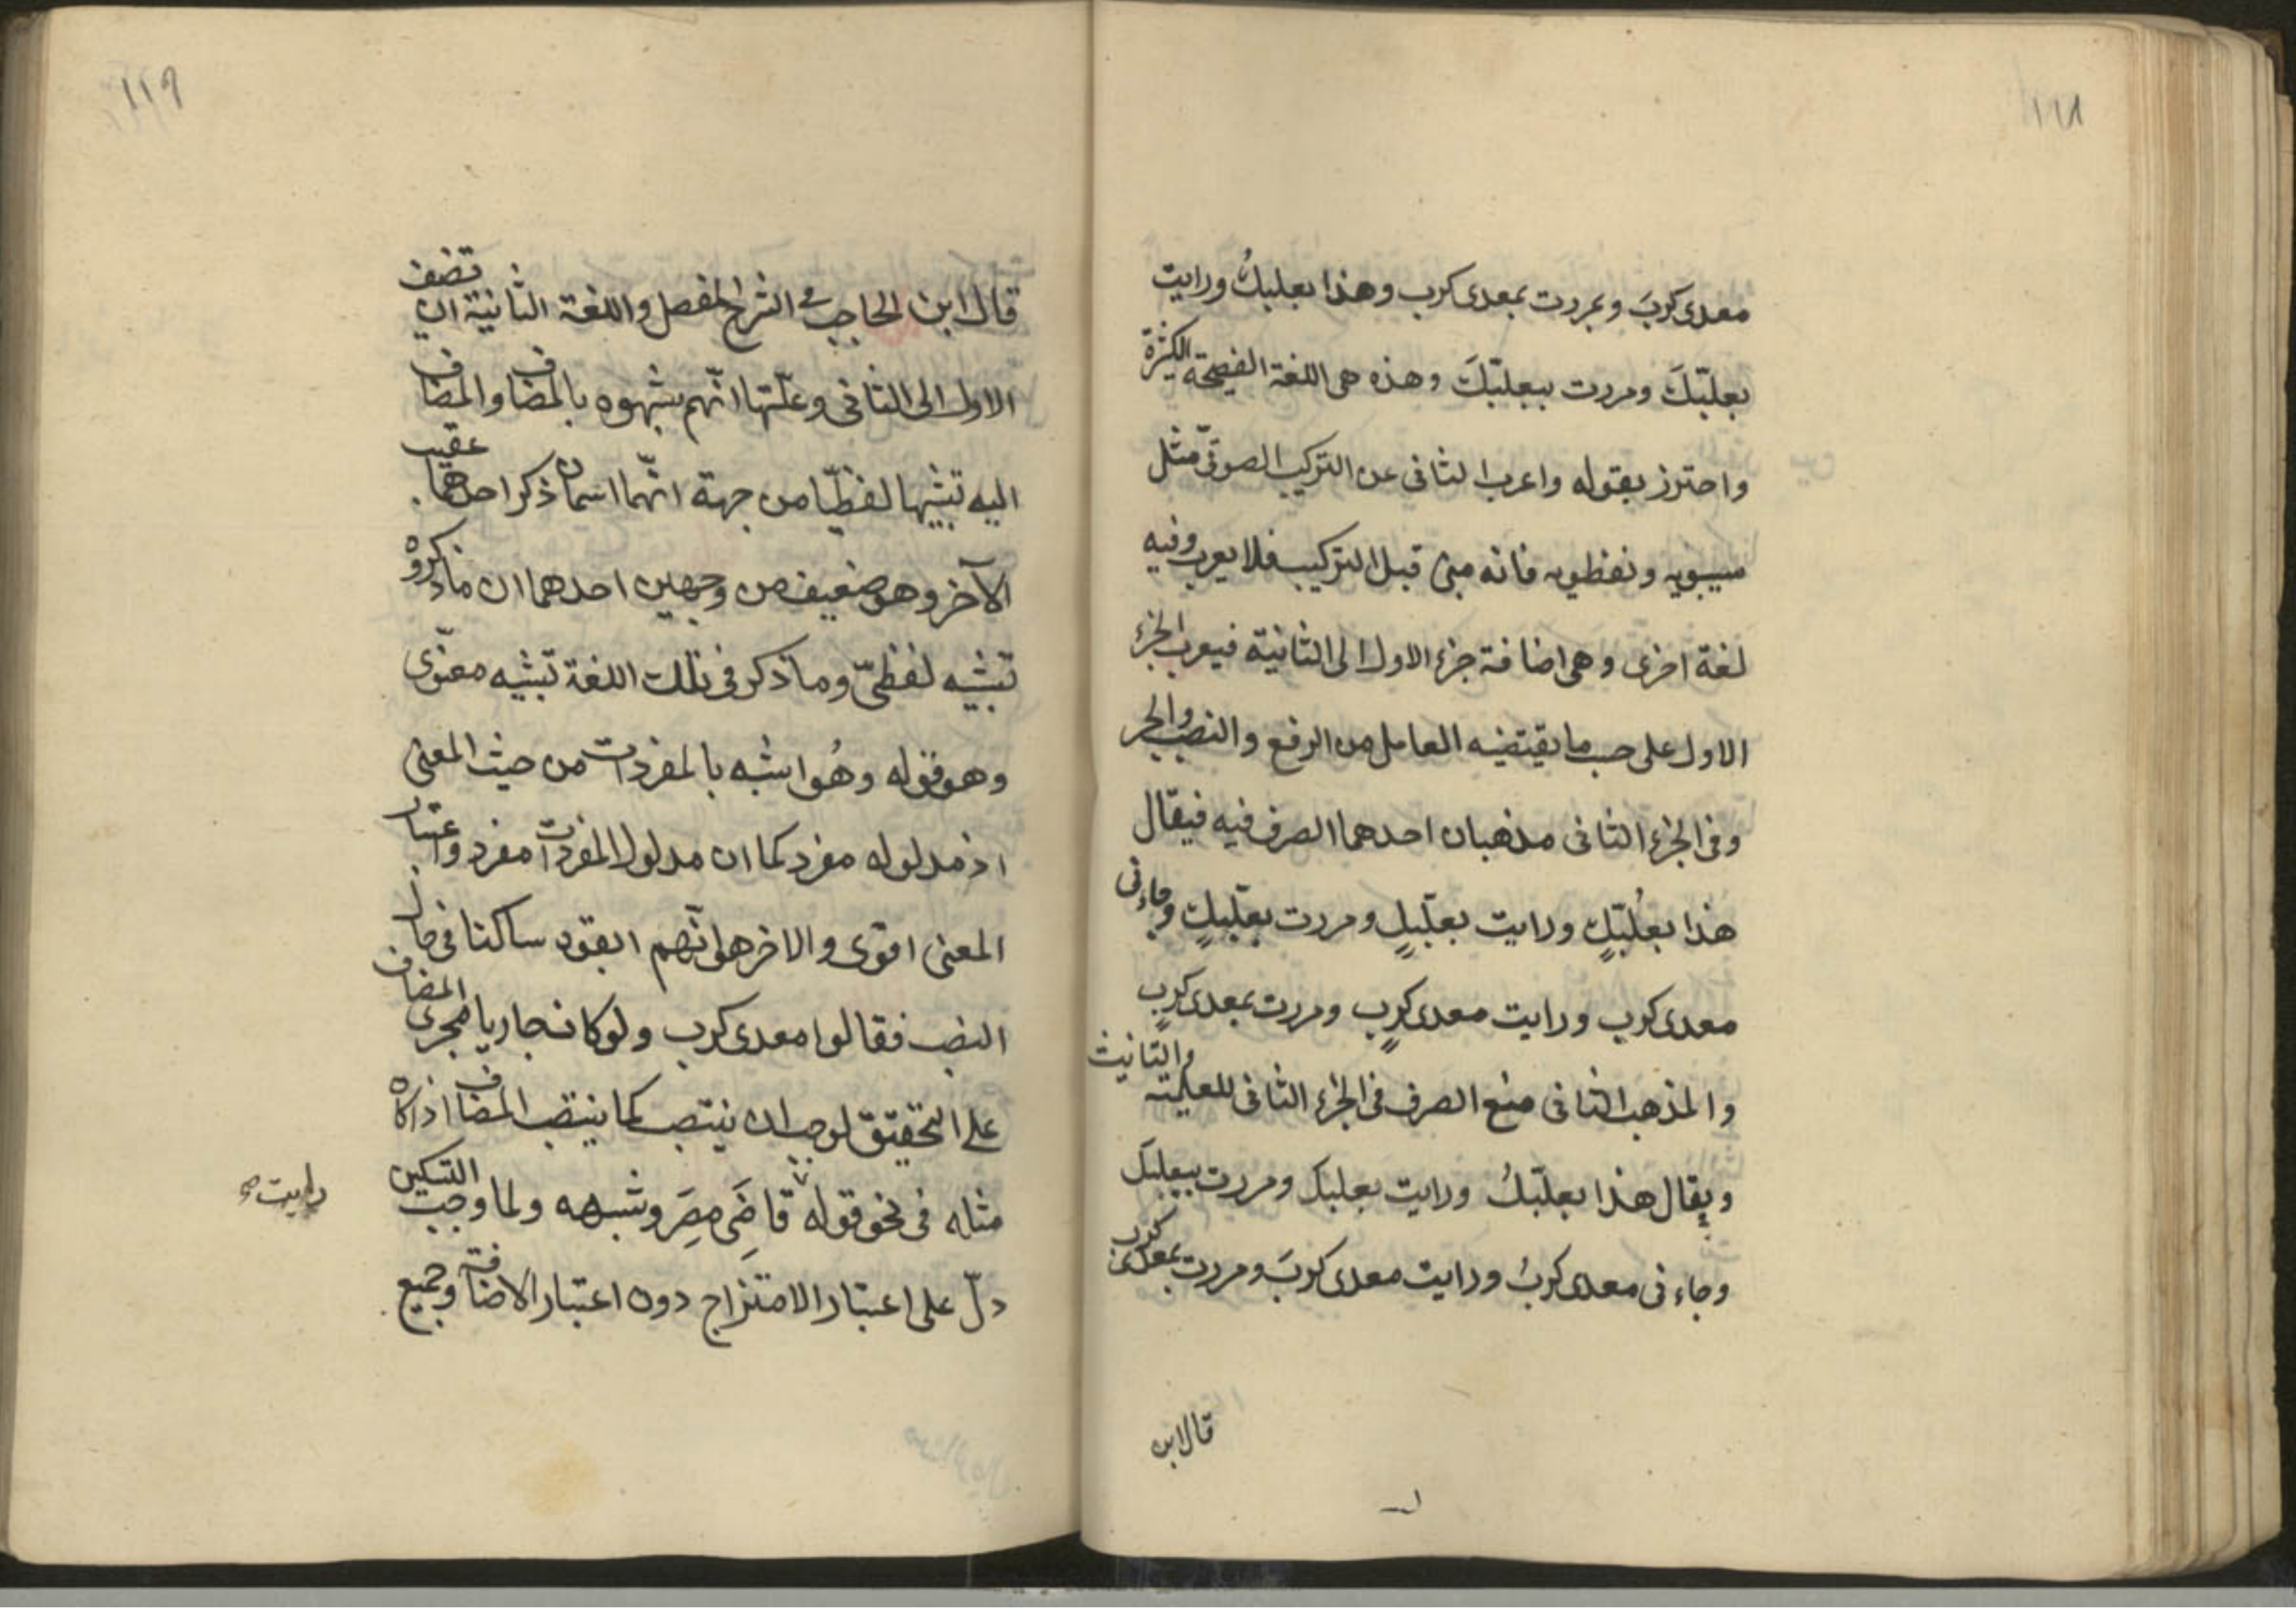 ١١٨
معدى كربَ وبمررت بمعدى كرب وهذا بعلبكُ ورايت
بعلبّكَ ومررت ببعلبّكَ وهذه هى اللغة الفصيحة الكثرة
واحترز بقوله واعرب الثانى عن التركيب الصوتىّ مثل
سيبويه ونفطويه فانه مبنى قبل التركيب فلا يعرب وفيه
لغة اخرى وهى اضافة جزء الاول الى الثانية فيعرب الجزء
الاول على حسب ما يقتضيه العامل من الرفع والنصب والجر
وفى الجزء الثانى مذهبان احدهما الصرف فيه فيقال
هذا بعلُبّكٍ ورايت بعلبّكٍ ومررت بعلبّكٍ وجاءنى
معدى كرب ورايت معدى كربٍ ومررت بمعدى كربٍ
والمذهب الثانى منع الصرف فى الجزء الثانى للعلمية والتانيث
ويقال هذا بعلبّكُ ورايت بعلبكَ ومررت ببعلبكَ
وجاءنى معدى كربُ ورايت معدى كربَ ومررت بمعدى كرب
قال ابن
١١٩
قال ابن الحاجب فى الشرح المفصل واللغة الثانية ان تضف
الاول الى الثانى وعلّتها انّهم شبهوه بالمضاف والمضاف
اليه تشبيها لفظيّا من جهة انّهما اسمان ذكر احدهما عقيب
الآخر وهو ضعيف من وجهين احدهما ان ما ذكروه
تشبيه لفظىّ وما ذكر فى تلك اللغة تشبيه معنوّى
وهو قوله وهُو اشبه بالمفردات من حيث المعنى
اذ مدلوله مفرد كما ان مدلول المفردات مفرد واعتبار
المعنى اقوى والاخر هو انّهم ابقوه ساكنا فى حال
النصب فقالوا معدى كرب ولو كان جاريا مجرى المضاف
على التحقيق لوجب ان ينتصب كما ينتصب المضاف اذا كان
مثله فى نحو قوله قاضَى مصِرَ وشبهه ولما وجب التسكين
رايت صح
دلّ على اعتبار الامتزاج دون اعتبار الاضافة وجميع